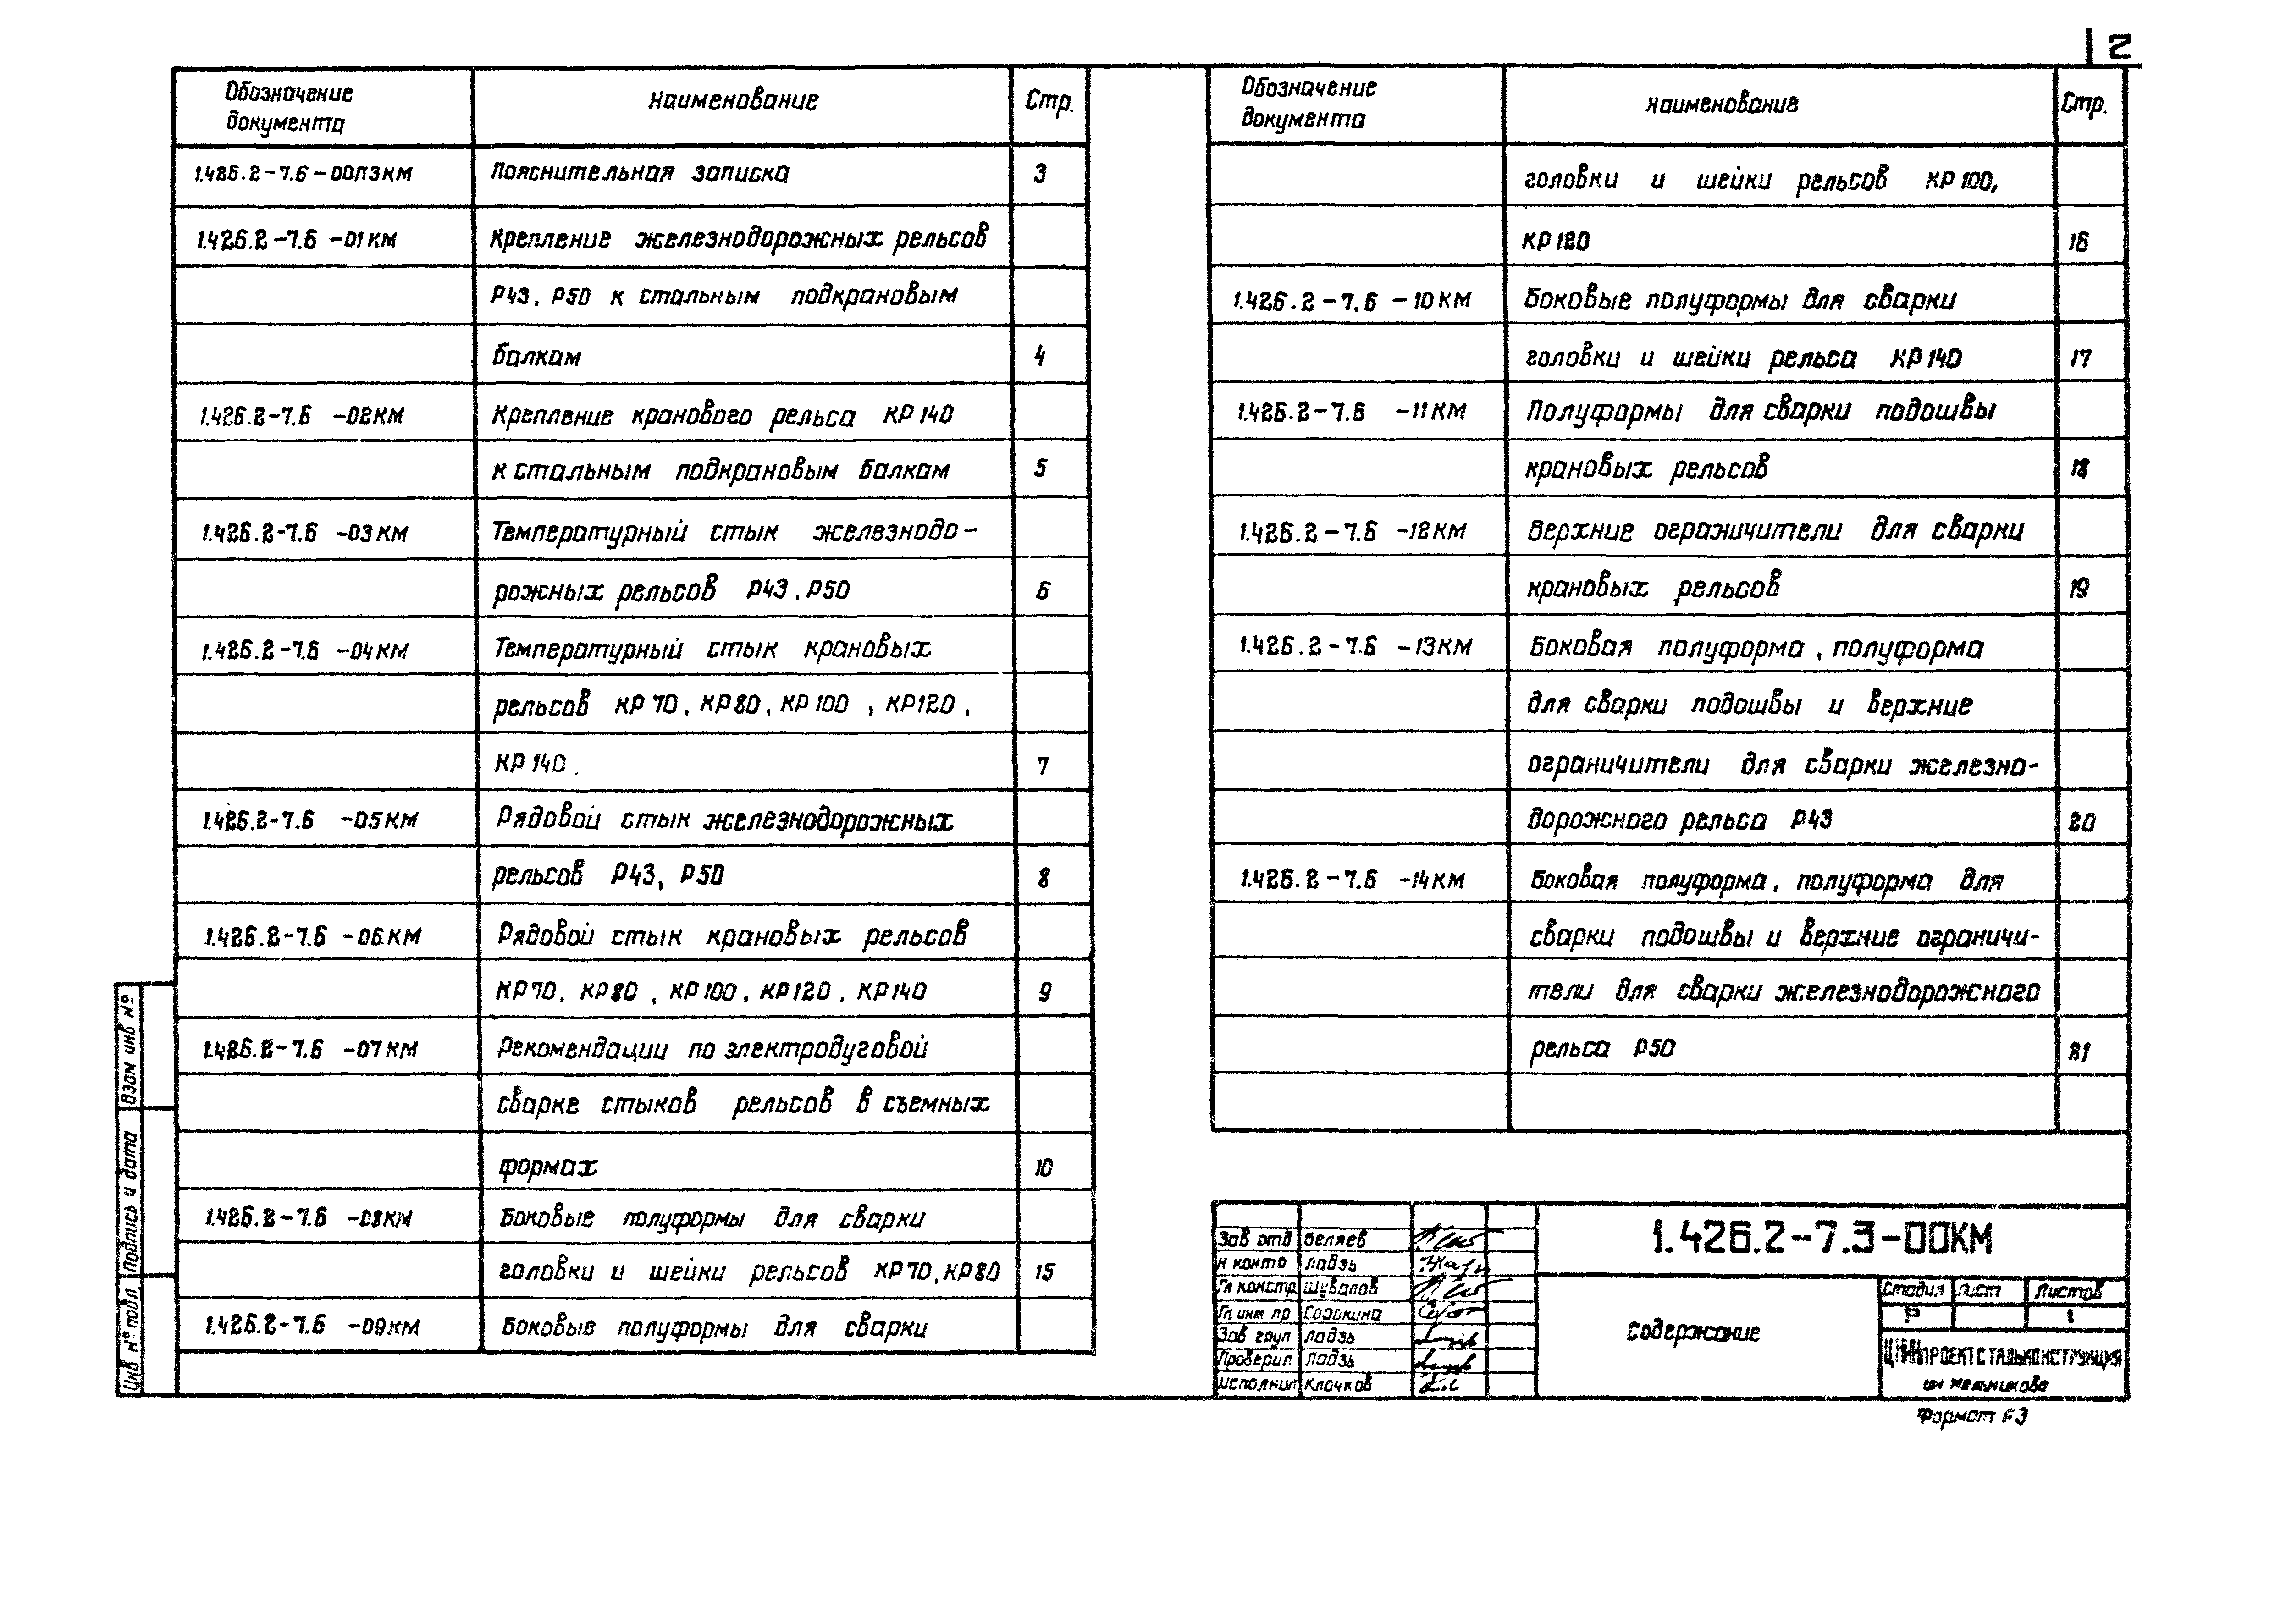 2
Обозначение документа Наименование Стр.
1.426.2-7.6-00ПЗКМ Пояснительная записка 3
1.426.2-7.6-01КМ Крепление железнодорожных рельсов
Р43, Р50 к стальным подкрановым
балкам 4
1.426.2-7.6-02КМ Крепление кранового рельса КР140
к стальным подкрановым балкам 5
1.426.2-7.6-03КМ Температурный стык железнодо-
рожных рельсов Р43, Р50 6
1.426.2-7.6-04КМ Температурный стык крановых
рельсов КР70, КР80, КР100, КР120,
КР140. 7
1.426.2-7.6-05КМ Рядовой стык железнодорожных
рельсов Р43, Р50 8
1.426.2-7.6-06КМ Рядовой стык крановых рельсов
КР70, КР80, КР100, КР120, КР140 9
1.426.2-7.6-07КМ Рекомендации по электродуговой
сварке стыков рельсов в съемных
формах 10
1.426.2-7.6-08КМ Боковые полуформы для сварки
головки и шейки рельсов КР70, КР80 15
1.426.2-7.6-09КМ Боковые полуформы для сварки
Обозначение документа Наименование Стр.
головки и шейки рельсов КР100,
КР120 16
1.426.2-7.6-10КМ Боковые полуформы для сварки
головки и шейки рельса КР140 17
1.426.2-7.6-11КМ Полуформы для сварки подошвы
крановых рельсов 18
1.426.2-7.6-12КМ Верхние ограничители для сварки
крановых рельсов 19
1.426.2-7.6-13КМ Боковая полуформа, полуформа
для сварки подошвы и верхние
ограничители для сварки железно-
дорожного рельса Р43 20
1.426.2-7.6-14КМ Боковая полуформа, полуформа для
сварки подошвы и верхние ограничи-
тели для сварки железнодорожного
рельса Р50 21
Взам инв №
Подпись и дата
Инв № подл
1.426.2-7.3-00КМ
Зав отд Беляев
Н контр Ладзь
Гл констр Шувалов
Гл инж пр Сорокина
Зав груп Ладзь
Проверил Ладзь
Исполнил Клочков
Содержание
Стадия Лист Листов
Р 1
ЦНИИПРОЕКТСТАЛЬКОНСТРУКЦИЯ
им Мельникова
Формат А3